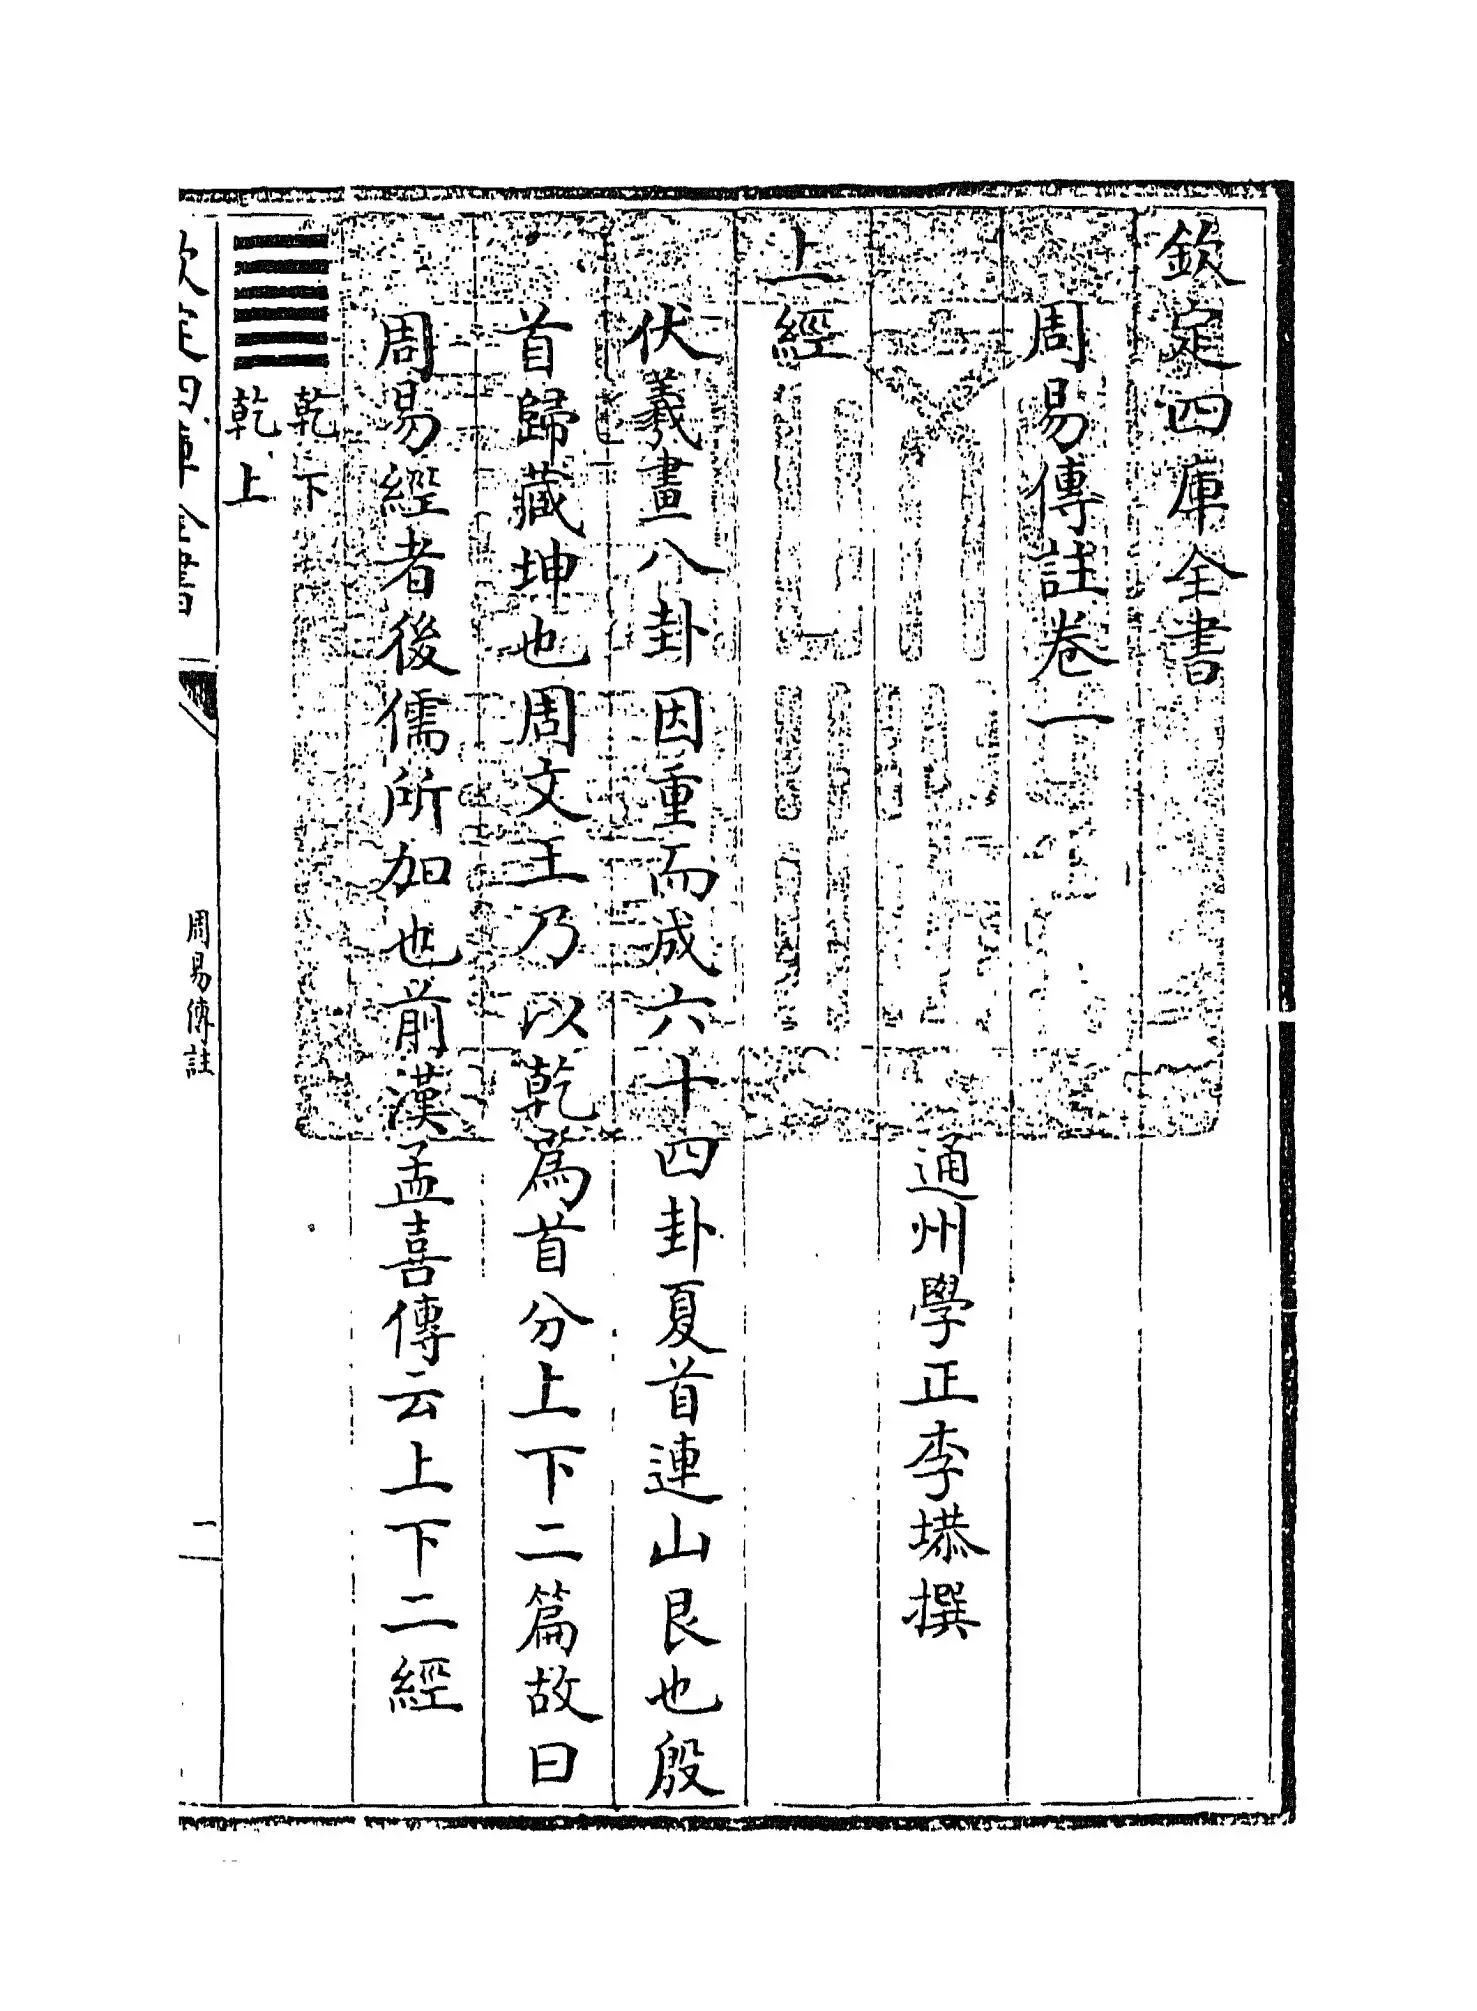 欽定四庫全書
周易傳註卷一
通州學正李塨撰
上經
伏羲畫八卦因重而成六十四卦夏首連山艮也殷
首歸藏坤也周文王乃以乾爲首分上下二篇故曰
周易經者後儒所加也前漢孟喜傳云上下二經
䷀乾下
乾上
欽定四庫全書
周易傳註
一